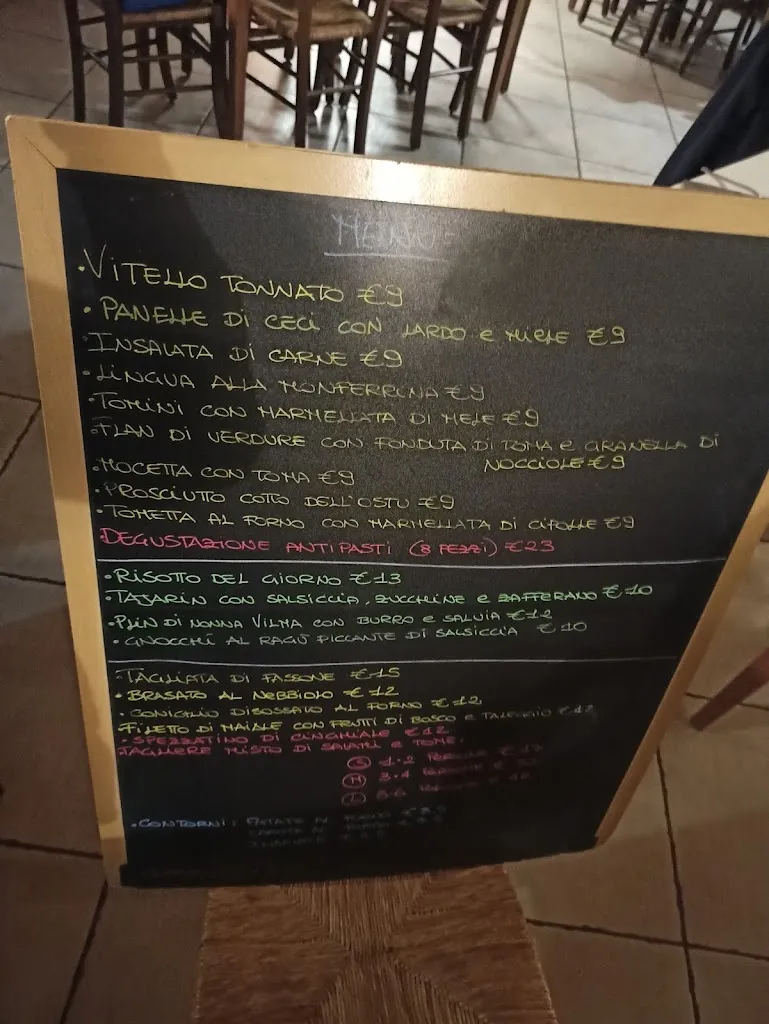 MENU
•VITELLO TONNATO €9
•PANELLE DI CECI CON LARDO E MIELE €9
•INSALATA DI CARNE €9
•LINGUA ALLA MONFERRINA €9
•TOMINI CON MARMELLATA DI MELE €9
•FLAN DI VERDURE CON FONDUTA DI TOMA E GRANELLA DI
NOCCIOLE €9
•MOCETTA CON TOMA €9
•PROSCIUTTO COTTO DELL'OSTU €9
•TOMETTA AL FORNO CON MARMELLATA DI CIPOLLE €9
•DEGUSTAZIONE ANTIPASTI (8 PEZZI) €23
•RISOTTO DEL GIORNO €13
•TAJARIN CON SALSICCIA, ZUCCHINE E ZAFFERANO €10
•PLIN DI NONNA VILMA CON BURRO E SALVIA €12
•GNOCCHI AL RAGÙ PICCANTE DI SALSICCIA €10
•TAGLIATA DI FASSONE €15
•BRASATO AL NEBBIOLO €12
•CONIGLIO DISOSSATO AL FORNO €12
FILETTO DI MAIALE CON FRUTTI DI BOSCO E TALEGGIO €12
•SPEZZATINO DI CINGHIALE €12
TAGLIERE MISTO DI SALUMI E TOME:
S 1-2
M 3-4
L 5-6
•CONTORNI: PATATE AL